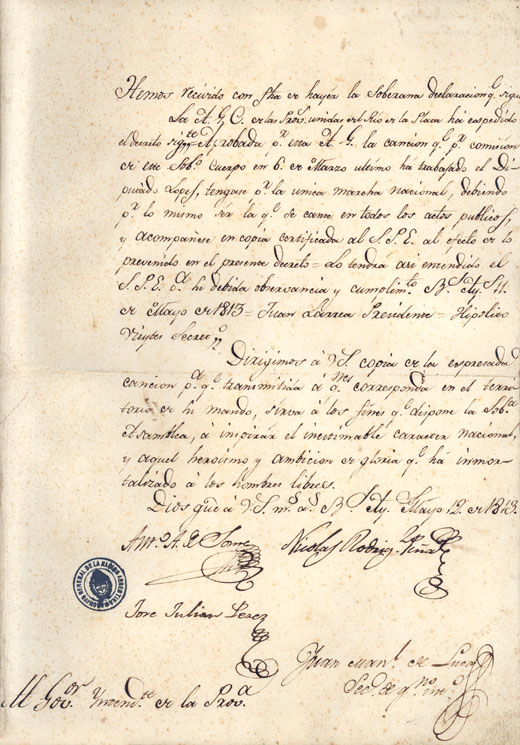 Hemos recivido con fha de hayer la Soberana declaracion q.e sigue
La A. G. C. de las Prov.s unidas del Rio de la Plata ha expedido
el decreto sig.te Aprobada p.r esta A. G. la cancion q.e p.r comision
de este Sob.o Cuerpo en 6. de Marzo ultimo ha trabajado el Di-
putado Lopes, tengase p.r la unica marcha nacional, debiendo
p.r lo mismo ser la q.e se cante en todos los actos publicos,
y acompañese en copia certificada al S. P. E. al efecto de lo
prevenido en el presente decreto = Lo tendrá asi entendido el
S. P. E. p.a su debida observancia y cumplim.to B.s Ay.s 11.
de Mayo de 1813 = Juan Larrea Presidente = Hipolito
Vieytes Secret.o
Dirigimos á V.S. copia de la expresada
cancion p.a q.e transmitida á q.nes corresponda en el terri-
torio de su mando, sirva á los fines q.e dispone la Sob.a
Asamblea, á inspirar el inestimable caracter nacional,
y aquel heroismo y ambicion de gloria q.e ha inmor-
talizado á los hombres libres.
Dios gũe á V.S. m.s a.s B.s Ay.s Mayo 12. de 1813.
Ant.o A. de Jonte
Nicolas Rodrig.z Peña
Jose Julian Perez
Juan Man.l de Luca
Sec.o de g.no int.o
Al Gov.or Yntend.te de la Prov.a